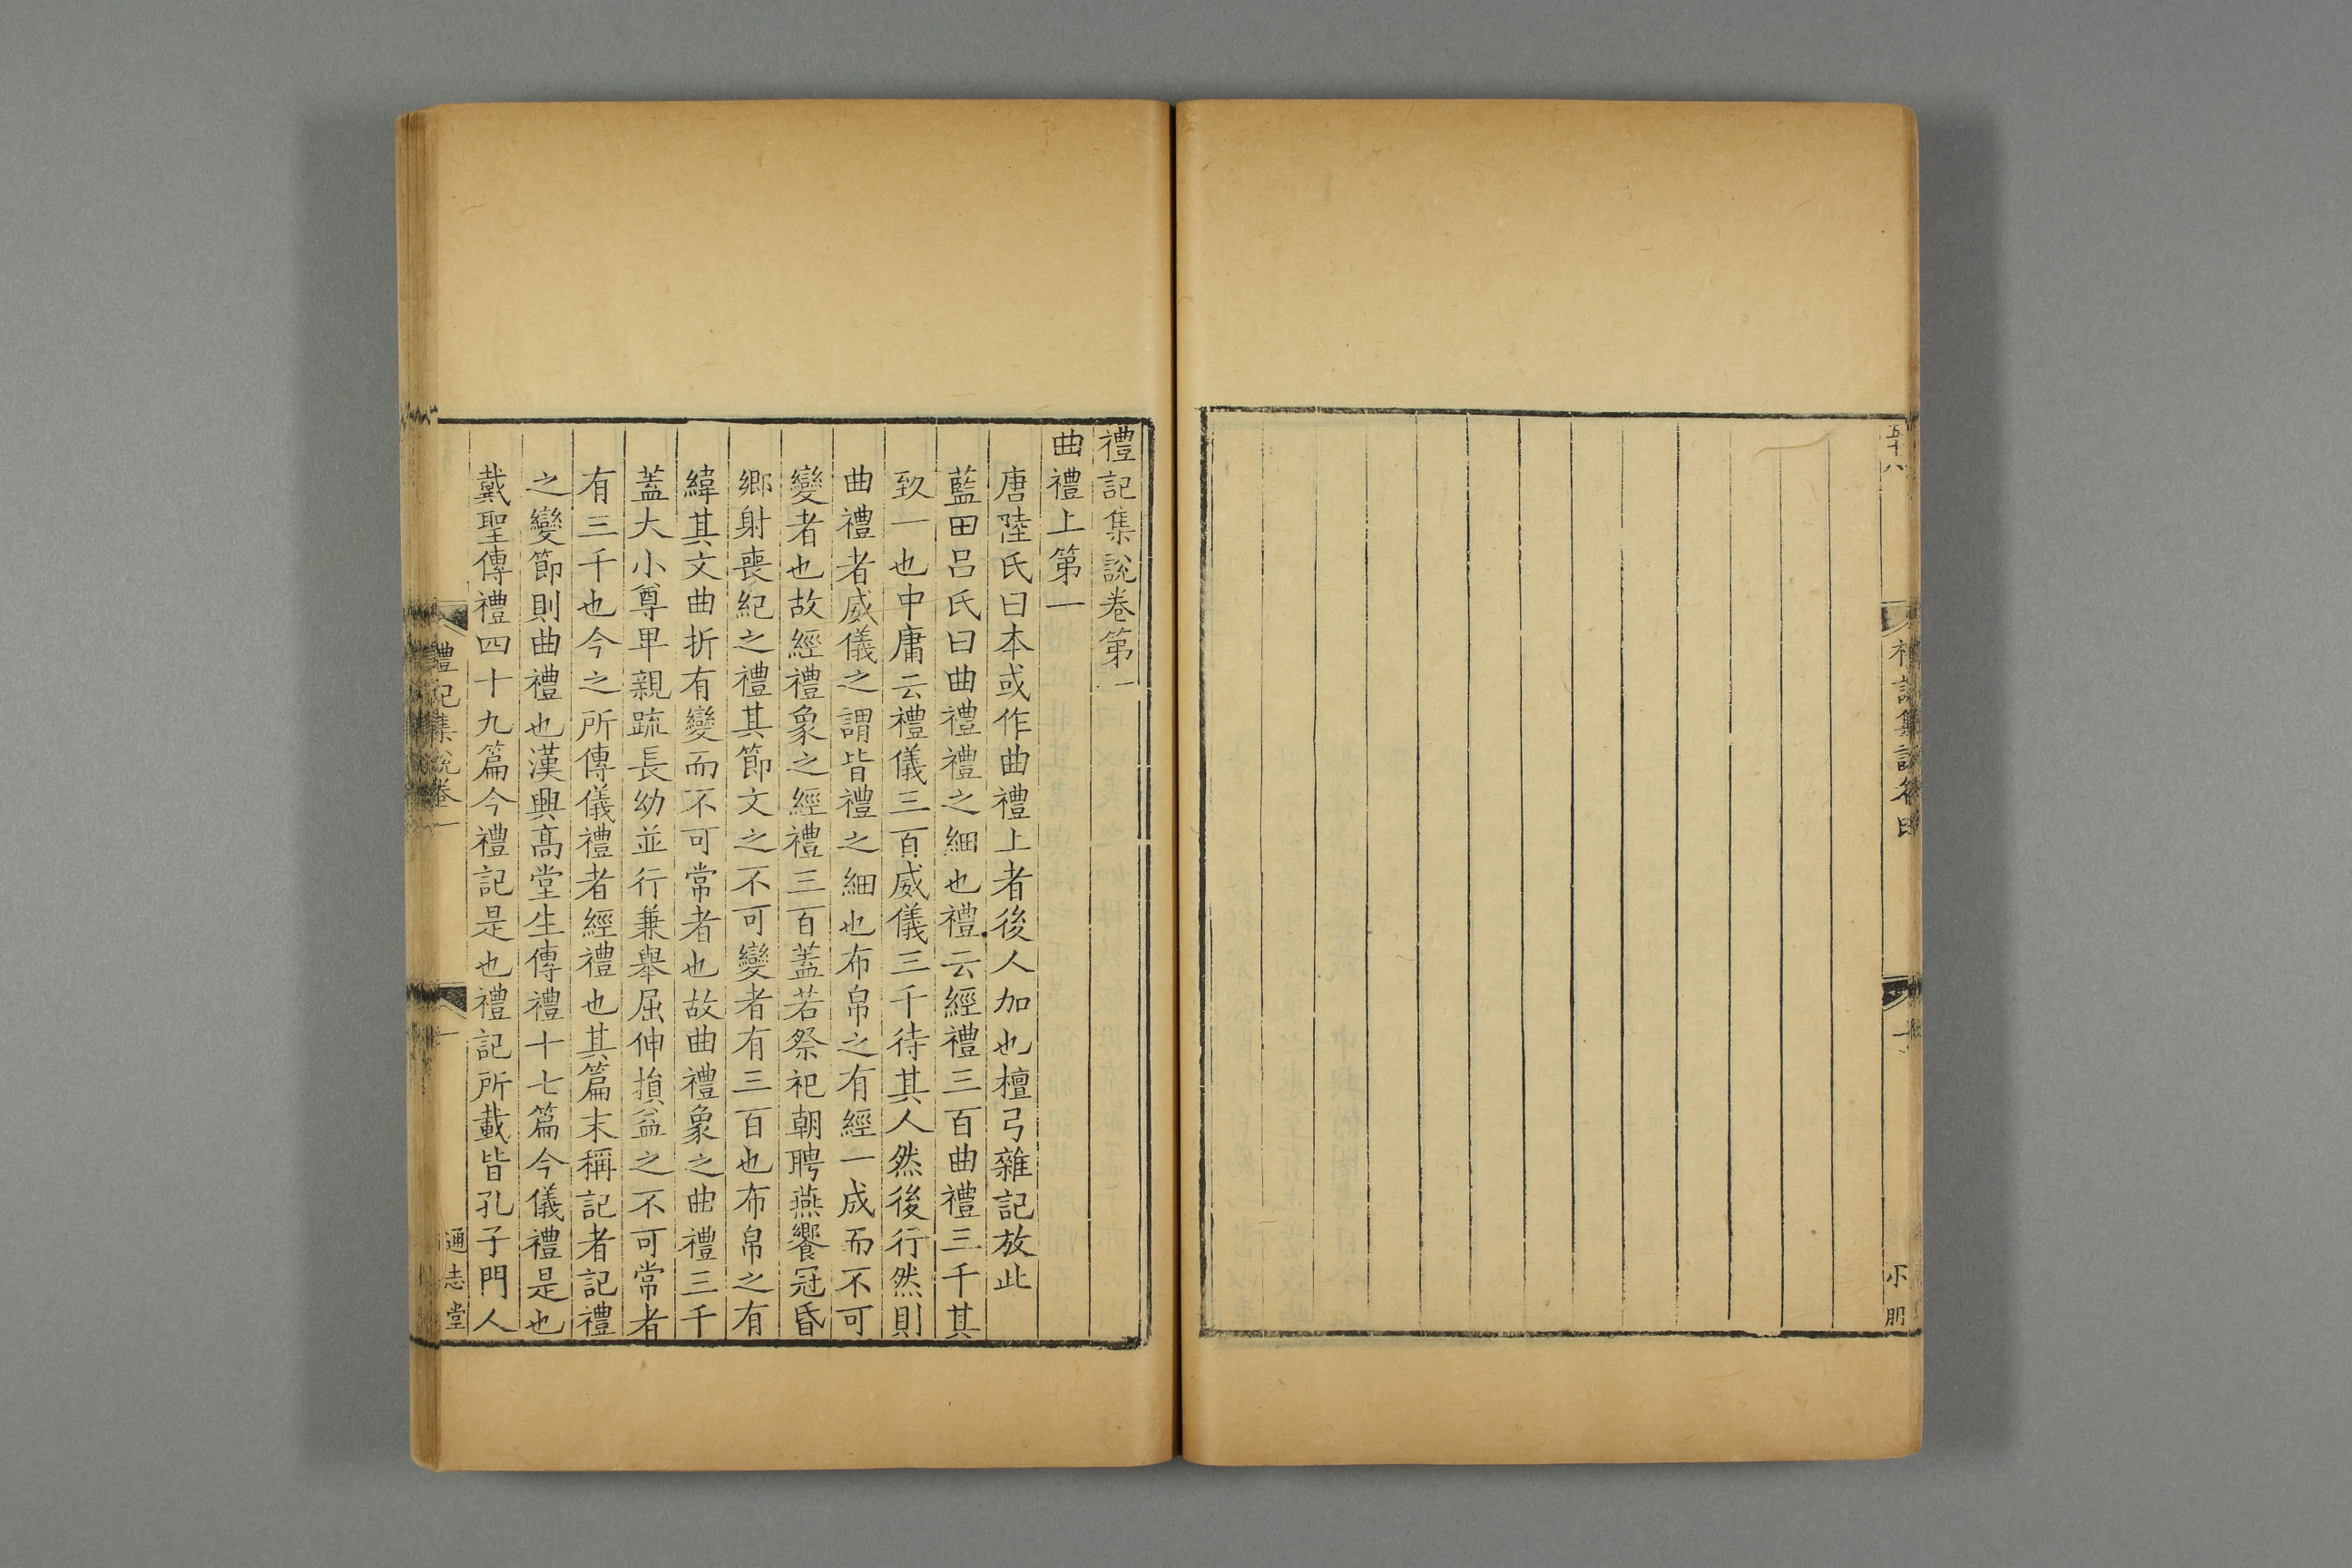 五十八
禮記集說名氏
小朋
禮記集說卷第一
曲禮上第一
唐陸氏曰本或作曲禮上者後人加也檀弓雜記放此
藍田呂氏曰曲禮禮之細也禮云經禮三百曲禮三千其
致一也中庸云禮儀三百威儀三千待其人然後行然則
曲禮者威儀之謂皆禮之細也布帛之有經一成而不可
變者也故經禮象之經禮三百蓋若祭祀朝聘燕饗冠昏
鄉射喪紀之禮其節文之不可變者有三百也布帛之有
緯其文曲折有變而不可常者也故曲禮象之曲禮三千
蓋大小尊卑親疏長幼並行兼舉屈伸損益之不可常者
有三千也今之所傳儀禮者經禮也其篇末稱記者記禮
之變節則曲禮也漢興高堂生傳禮十七篇今儀禮是也
戴聖傳禮四十九篇今禮記是也禮記所載皆孔子門人
禮記集說卷一
一
通志堂